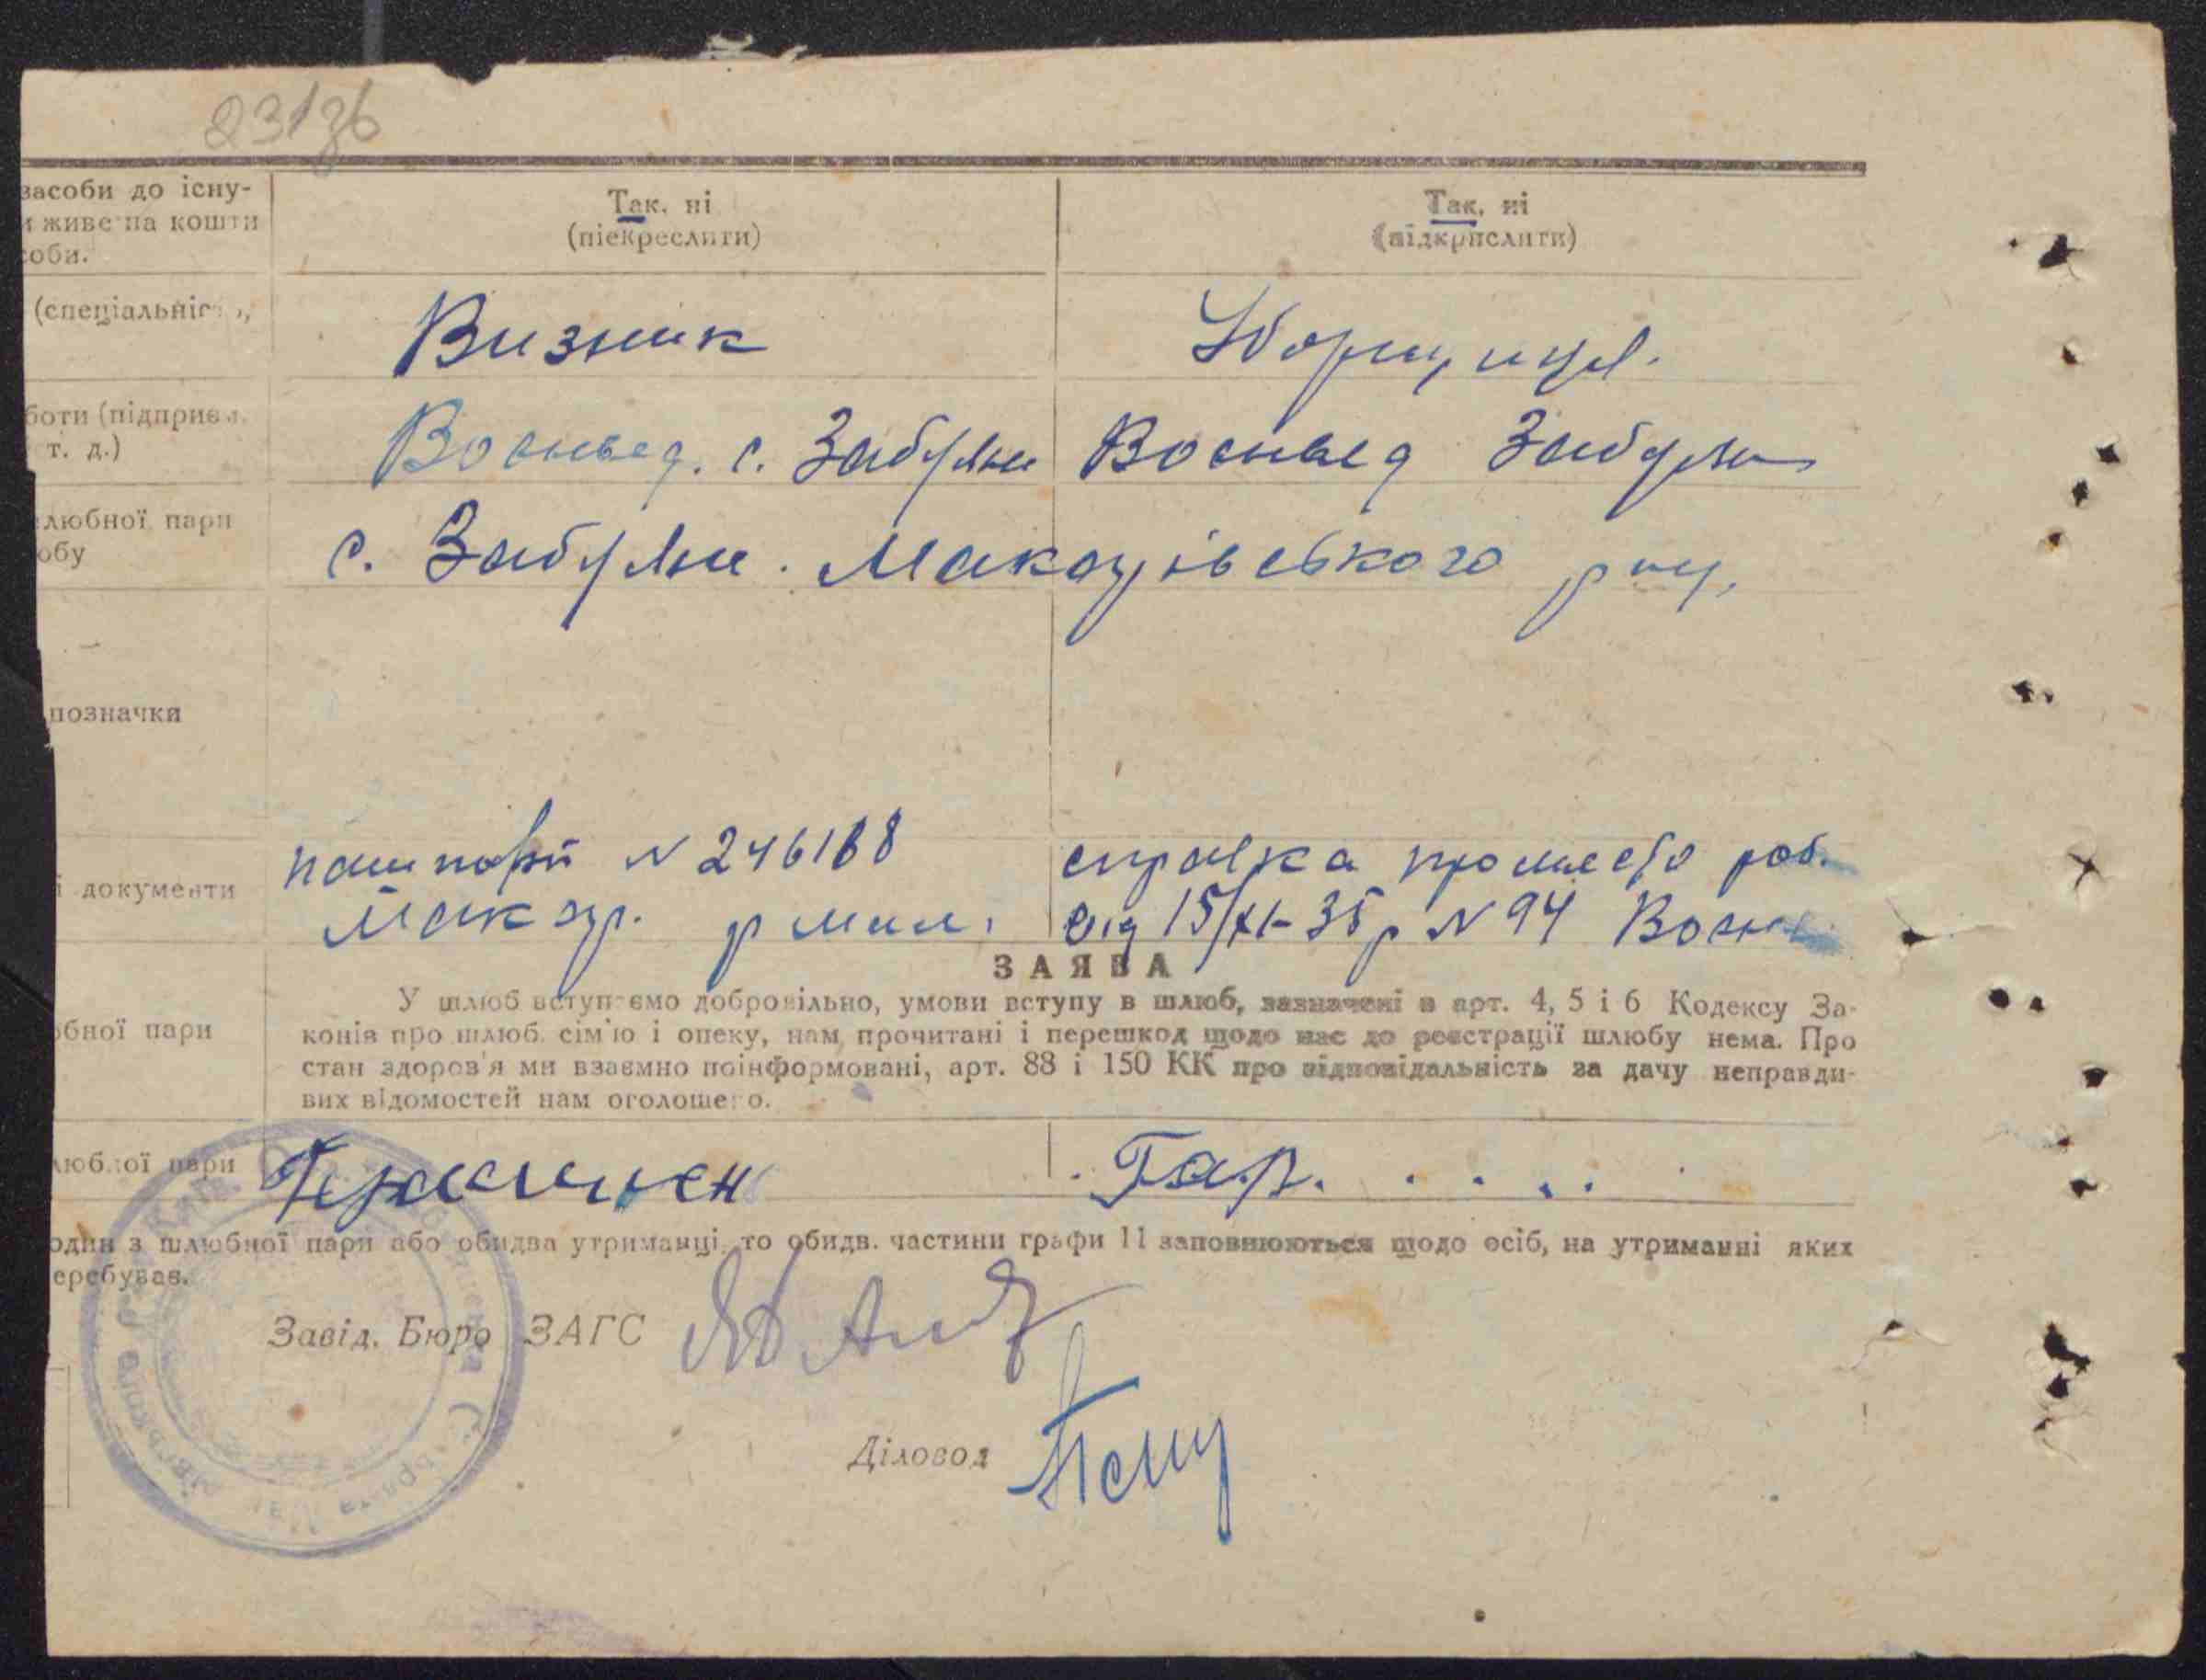 231зв
засоби до існу-
и живе на кошти
соби.
Так, ні
(піекреслити)
Так, ні
(підкрислити)
(спеціальність,
Визник
Уборщиця.
боти (підприєм.
т. д.)
Воєнвед. с. Забуяни
Воєнвед Забуян
любної пари
обу
с. Забуяни. Макарівського рну,
позначки
і документи
пашпорт N 246168
Макар. р мил.
справка про место роб.
від 15/XI-35 р N 94 Воєн
ЗАЯВА
обної пари
У шлюб вступаємо добровільно, умови вступу в шлюб, зазначені в арт. 4, 5 і 6 Кодексу За-
конів про шлюб. сім'ю і опеку, нам прочитані і перешкод щодо нас до реєстрації шлюбу нема. Про
стан здоров'я ми взаємно поінформовані, арт. 88 і 150 КК про відповідальність за дачу неправди-
вих відомостей нам оголошено.
любної пари
Гар.
один з шлюбної пари або обидва утриманці, то обидв. частини графи 11 заповнюються щодо осіб, на утриманні яких
еребував.
Завід. Бюро ЗАГС
Діловод